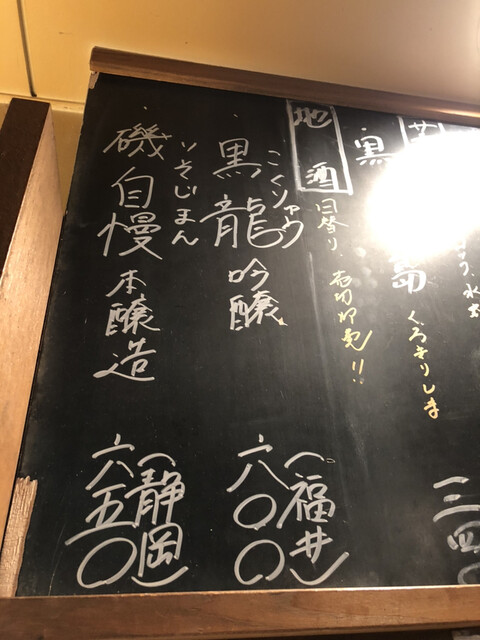 くろきりしま
地酒
日替り、売切御免!!
こくりゅう
・黒龍 吟醸
(福井)
六〇〇
いそじまん
・磯自慢 本醸造
(静岡)
六五〇